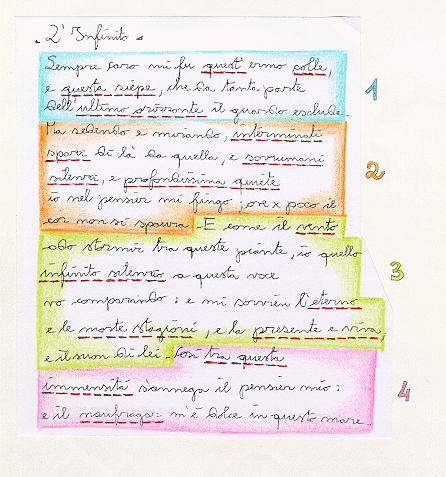 "L'Infinito"
Sempre caro mi fu quest'ermo colle,
e questa siepe, che da tanta parte
dell'ultimo orizzonte il guardo esclude.
1
Ma sedendo e mirando, interminati
spazi di là da quella, e sovrumani
silenzi, e profondissima quiete
io nel pensier mi fingo; ove x poco il
cor non si spaura. E come il vento
2
odo stormir tra queste piante, io quello
infinito silenzio a questa voce
vo comparando: e mi sovvien l'eterno
e le morte stagioni, e la presente e viva,
e il suon di lei. Così tra questa
3
immensità s'annega il pensier mio:
e il naufragar m'è dolce in questo mare.
4